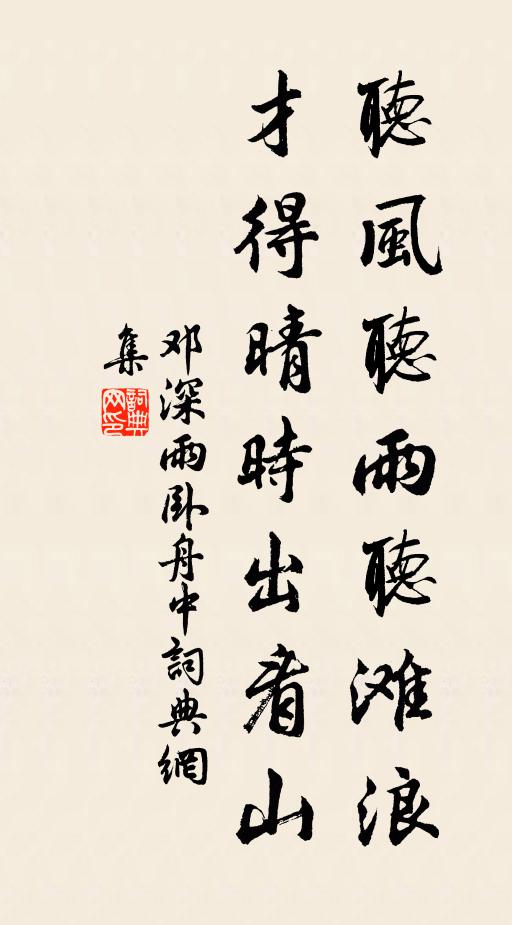 聽風聽雨聽滩浪
才得晴時出看山
邓深雨卧舟中詞典網
集
詞典网印